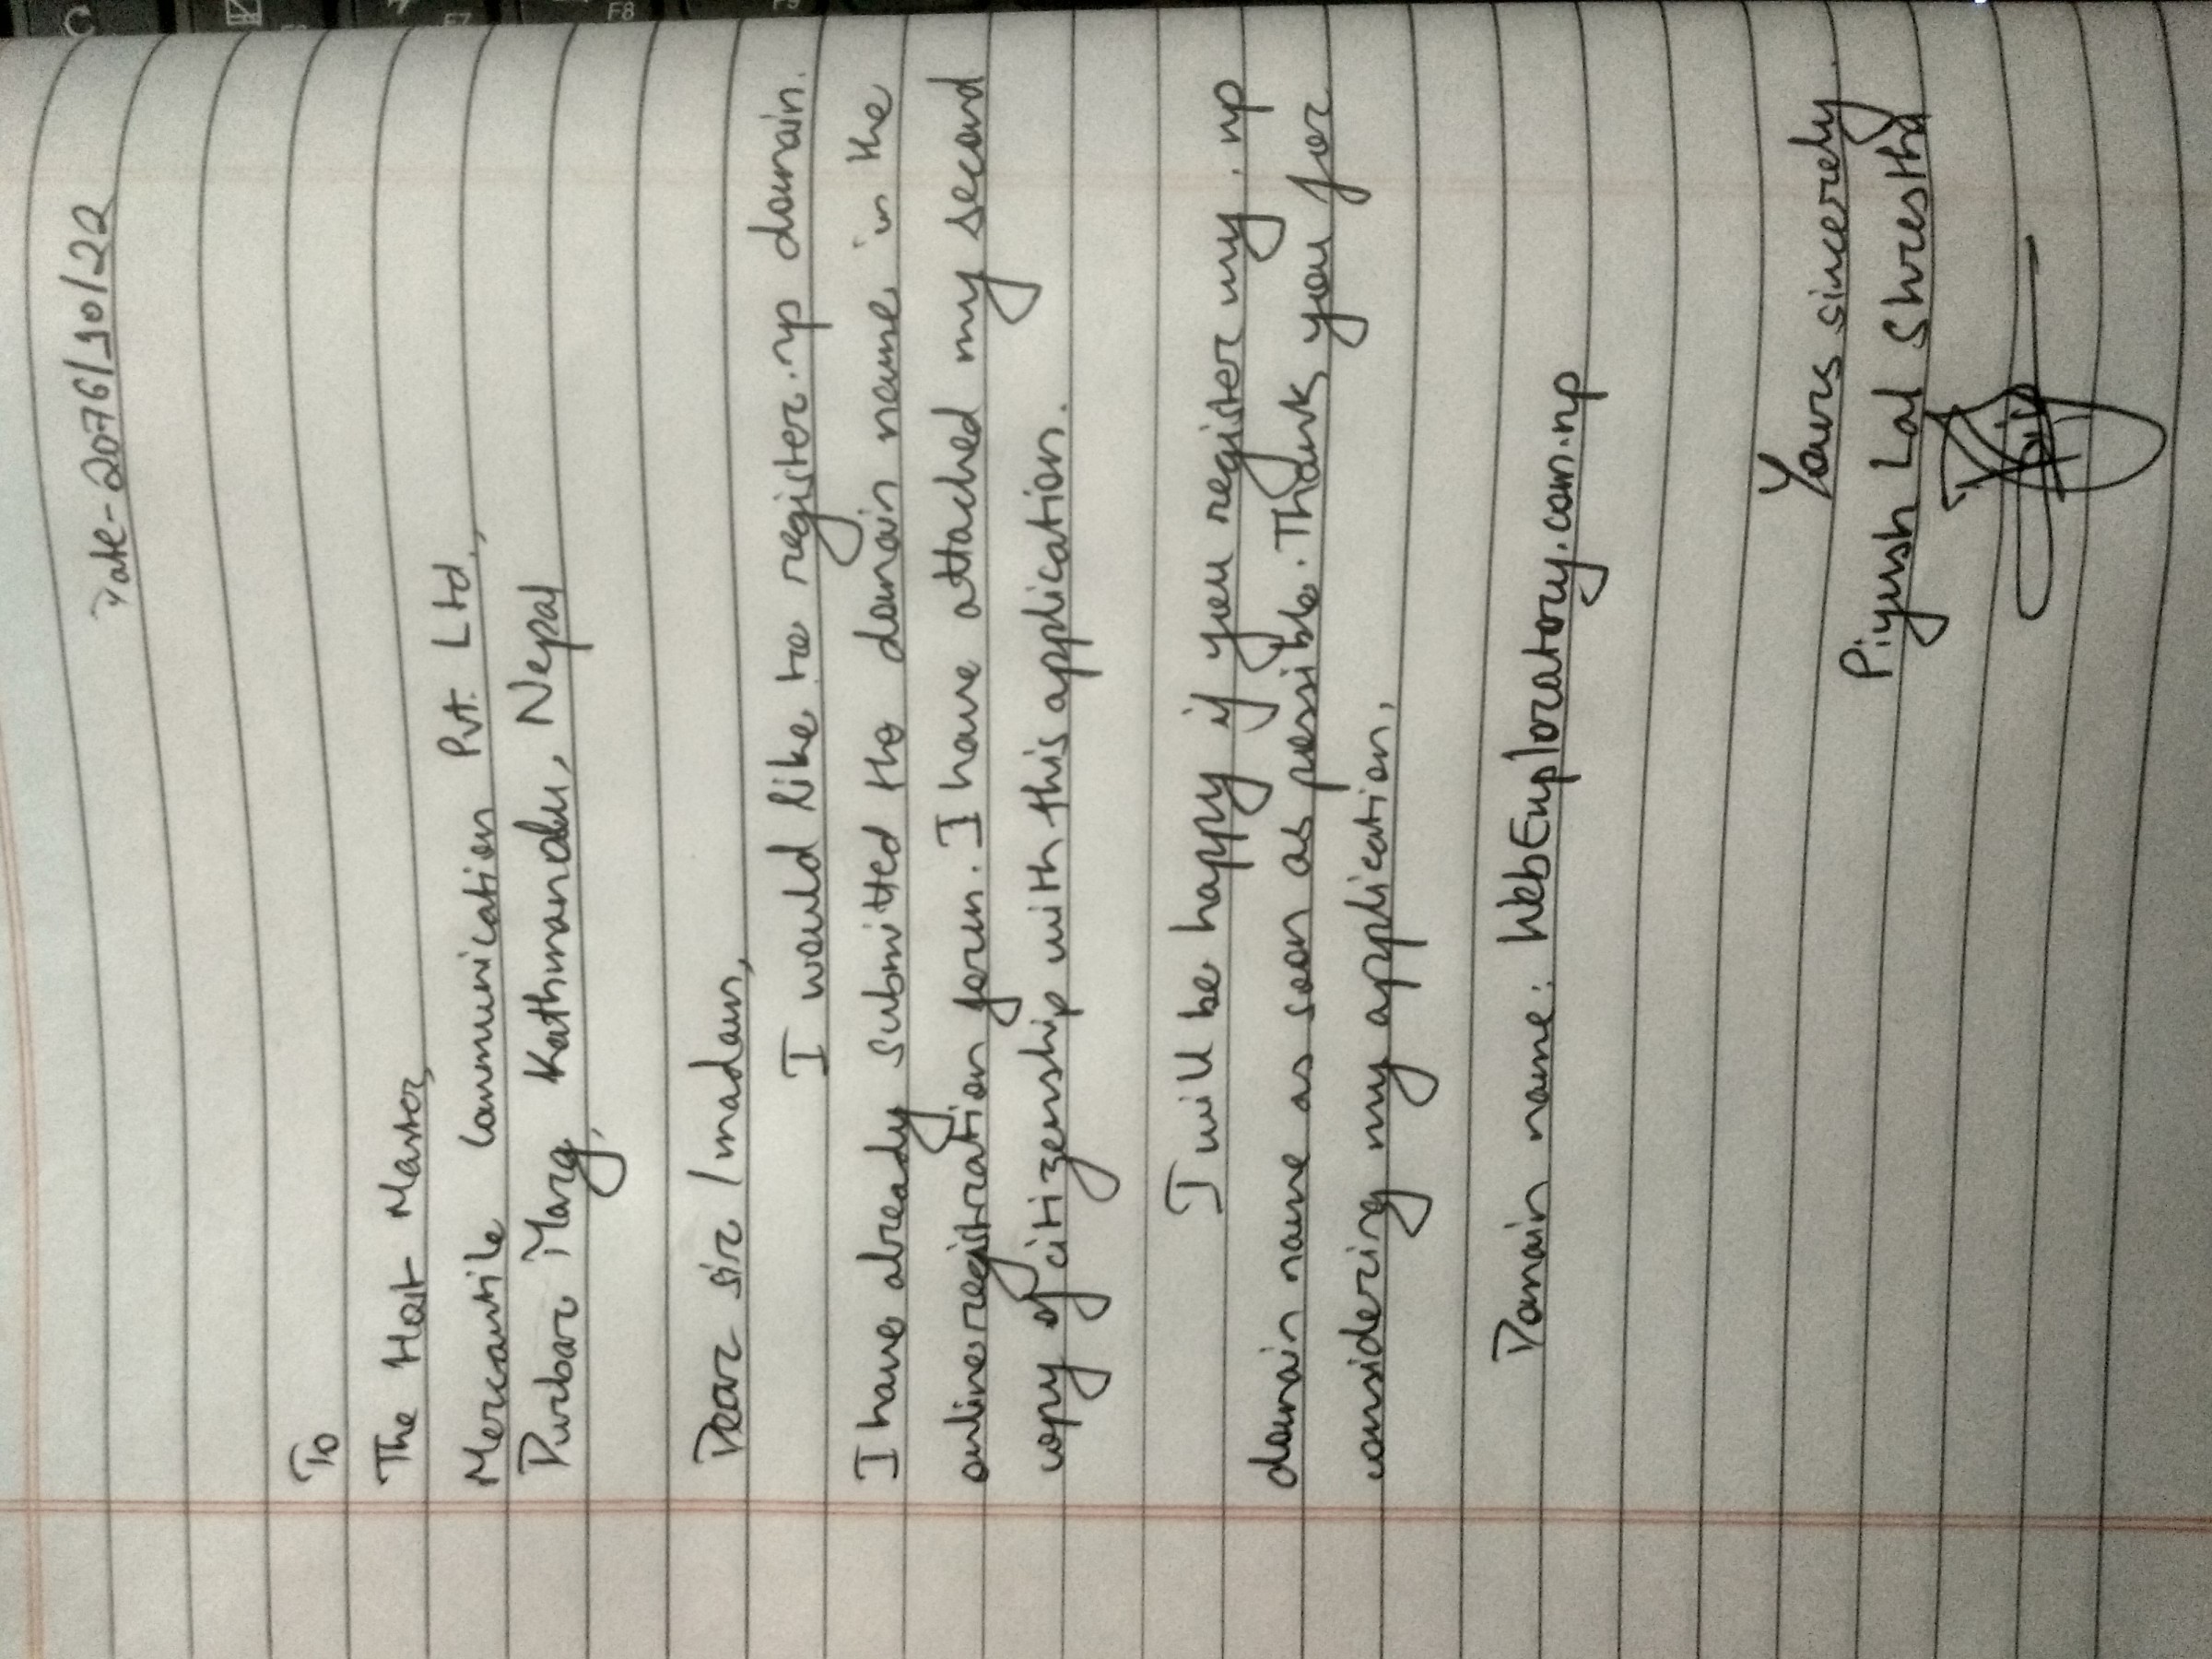 Date- 2076/10/22
To
The Host Master,
Mercantile Communication Pvt. Ltd.,
Durbar Marg, Kathmandu, Nepal
Dear sir /madam,
I would like to register .np domain.
I have already submitted the domain name in the
online registration form. I have attached my second
copy of citizenship with this application.
I will be happy if you register my .np
domain name as soon as possible. Thank you for
considering my application.
Domain name: WebExploratory.com.np
Yours sincerely
Piyush Lal Shrestha
F7
F8